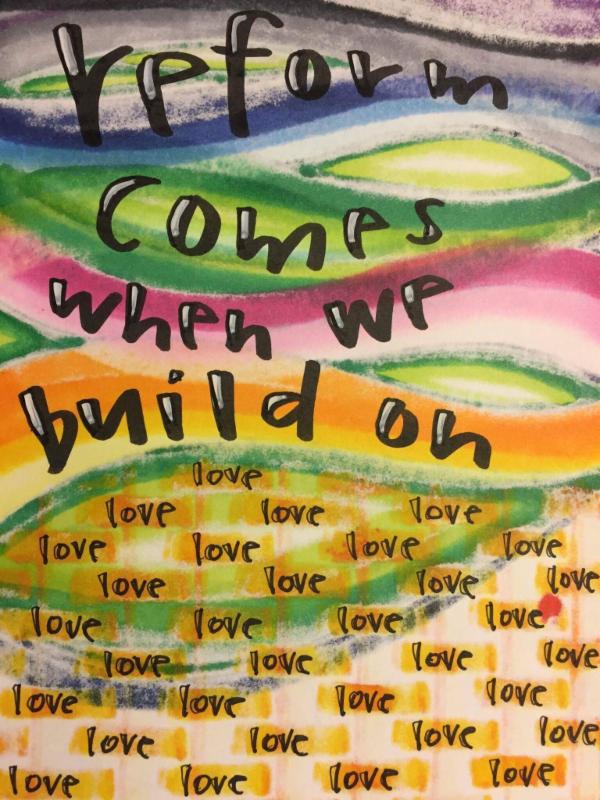 reform
comes
when we
build on
love
love love love
love love love love
love love love love
love love love love
love love love love
love love love love
love love love love
love love love love